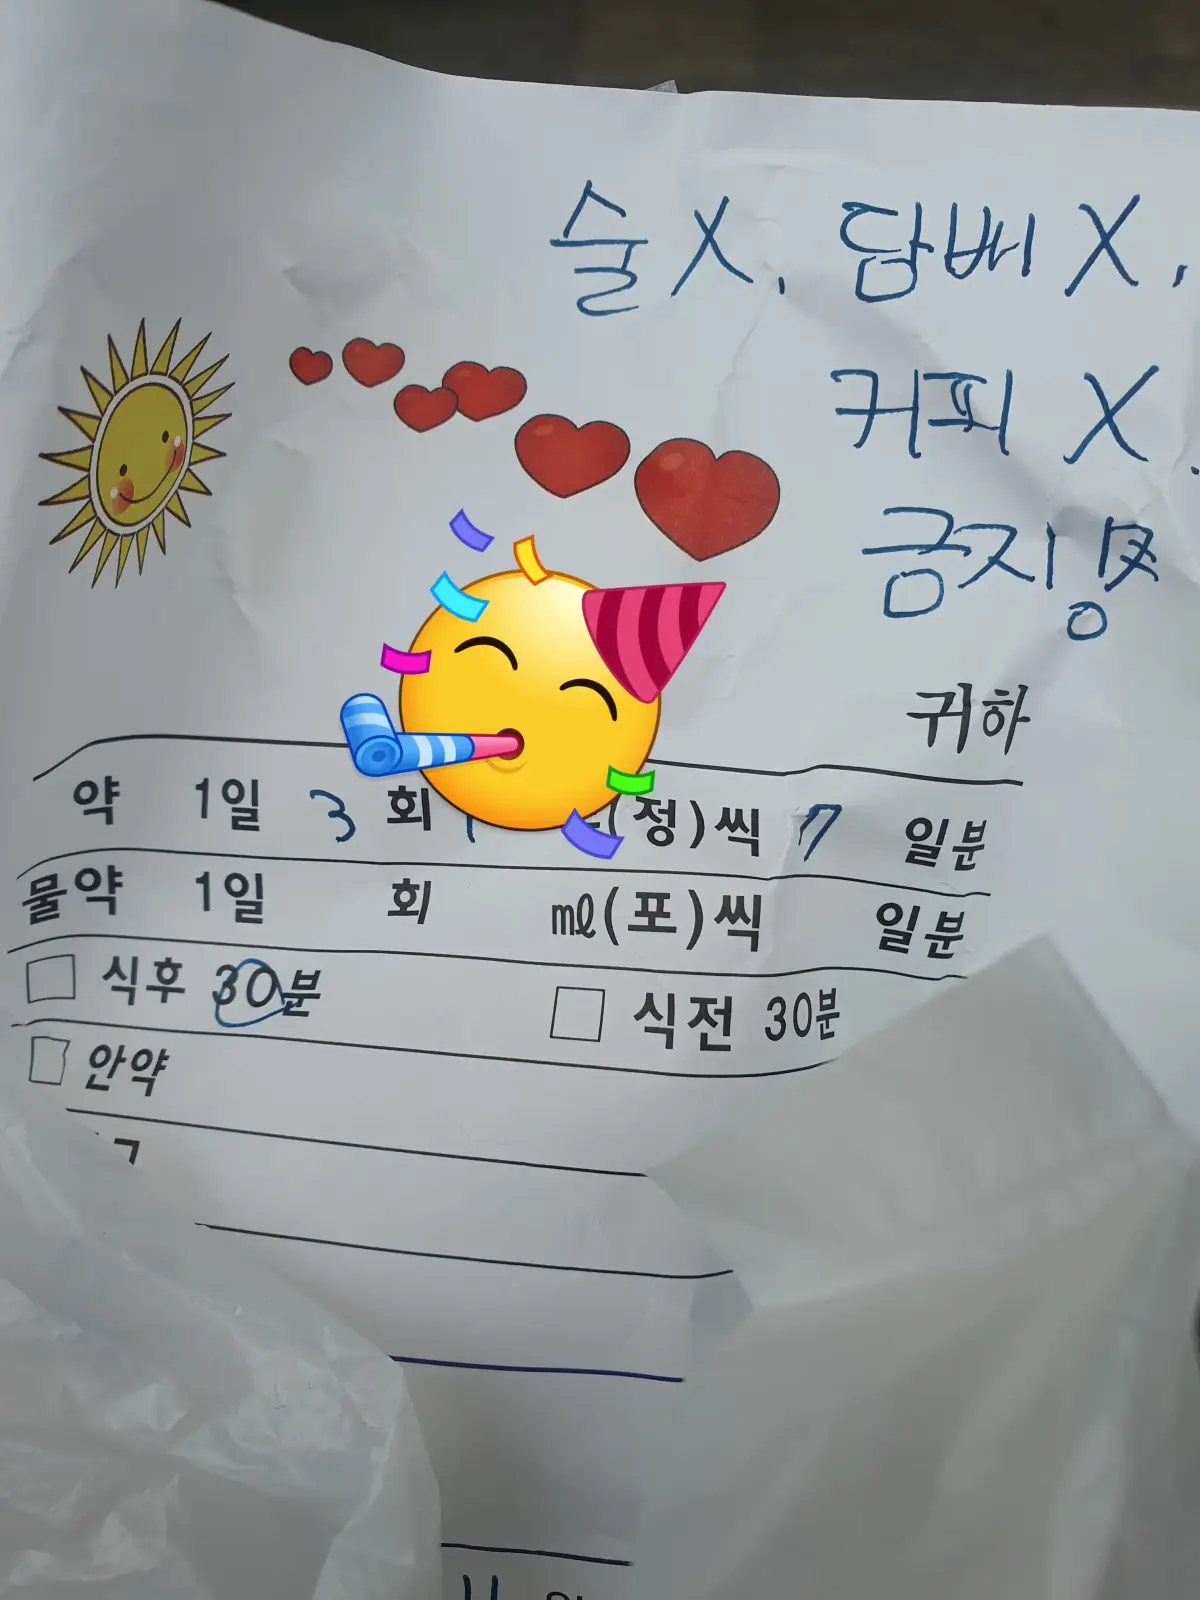 술 X. 담배 X.
커피 X.
금지평
귀하
약 1일 3 회 1 (정)씩 7 일분
물약 1일 회 ㎖(포)씩 일분
식후 30분 식전 30분
안약